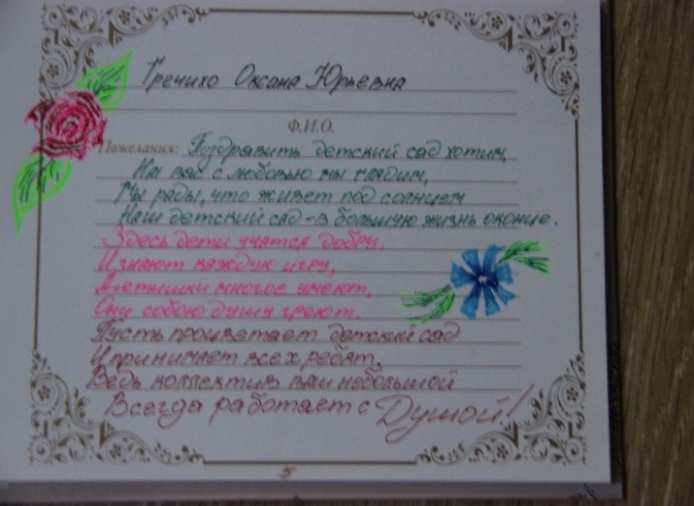 Гречихо Оксана Юрьевна
Ф.И.О.
Пожелания: Поздравить детский сад хотим,
На вас с любовью мы глядим,
Мы рады, что живет под солнцем
Наш детский сад - в большую жизнь оконце.
Здесь дети учатся добру,
И знают каждую игру,
Детишки многое умеют,
Они собою душу греют.
Пусть процветает детский сад
И принимает всех ребят.
Ведь коллектив ваш небольшой
Всегда работает с Душой!
5